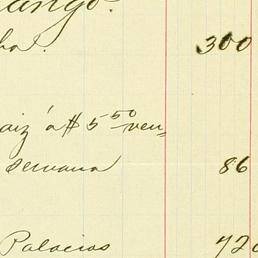 ango.
ba. 300
aiz á $5 50 ven-
semana 86
Palacios 720